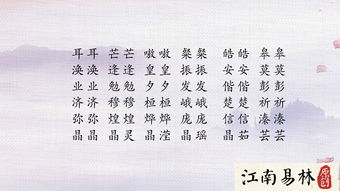 耳耳 芒芒 嗷嗷 粲粲 皓皓 皋皋
涣涣 逢逢 皇皇 振振 安安 莫莫
业业 勉勉 夕夕 发发 偕偕 彭彭
济济 穆穆 桓桓 峨峨 楚楚 祈祈
弥弥 煌煌 烨烨 庞庞 信信 溱溱
晶晶 晶灵 晶滢 晶瑶 晶茹 芸芸
江南易林
原创